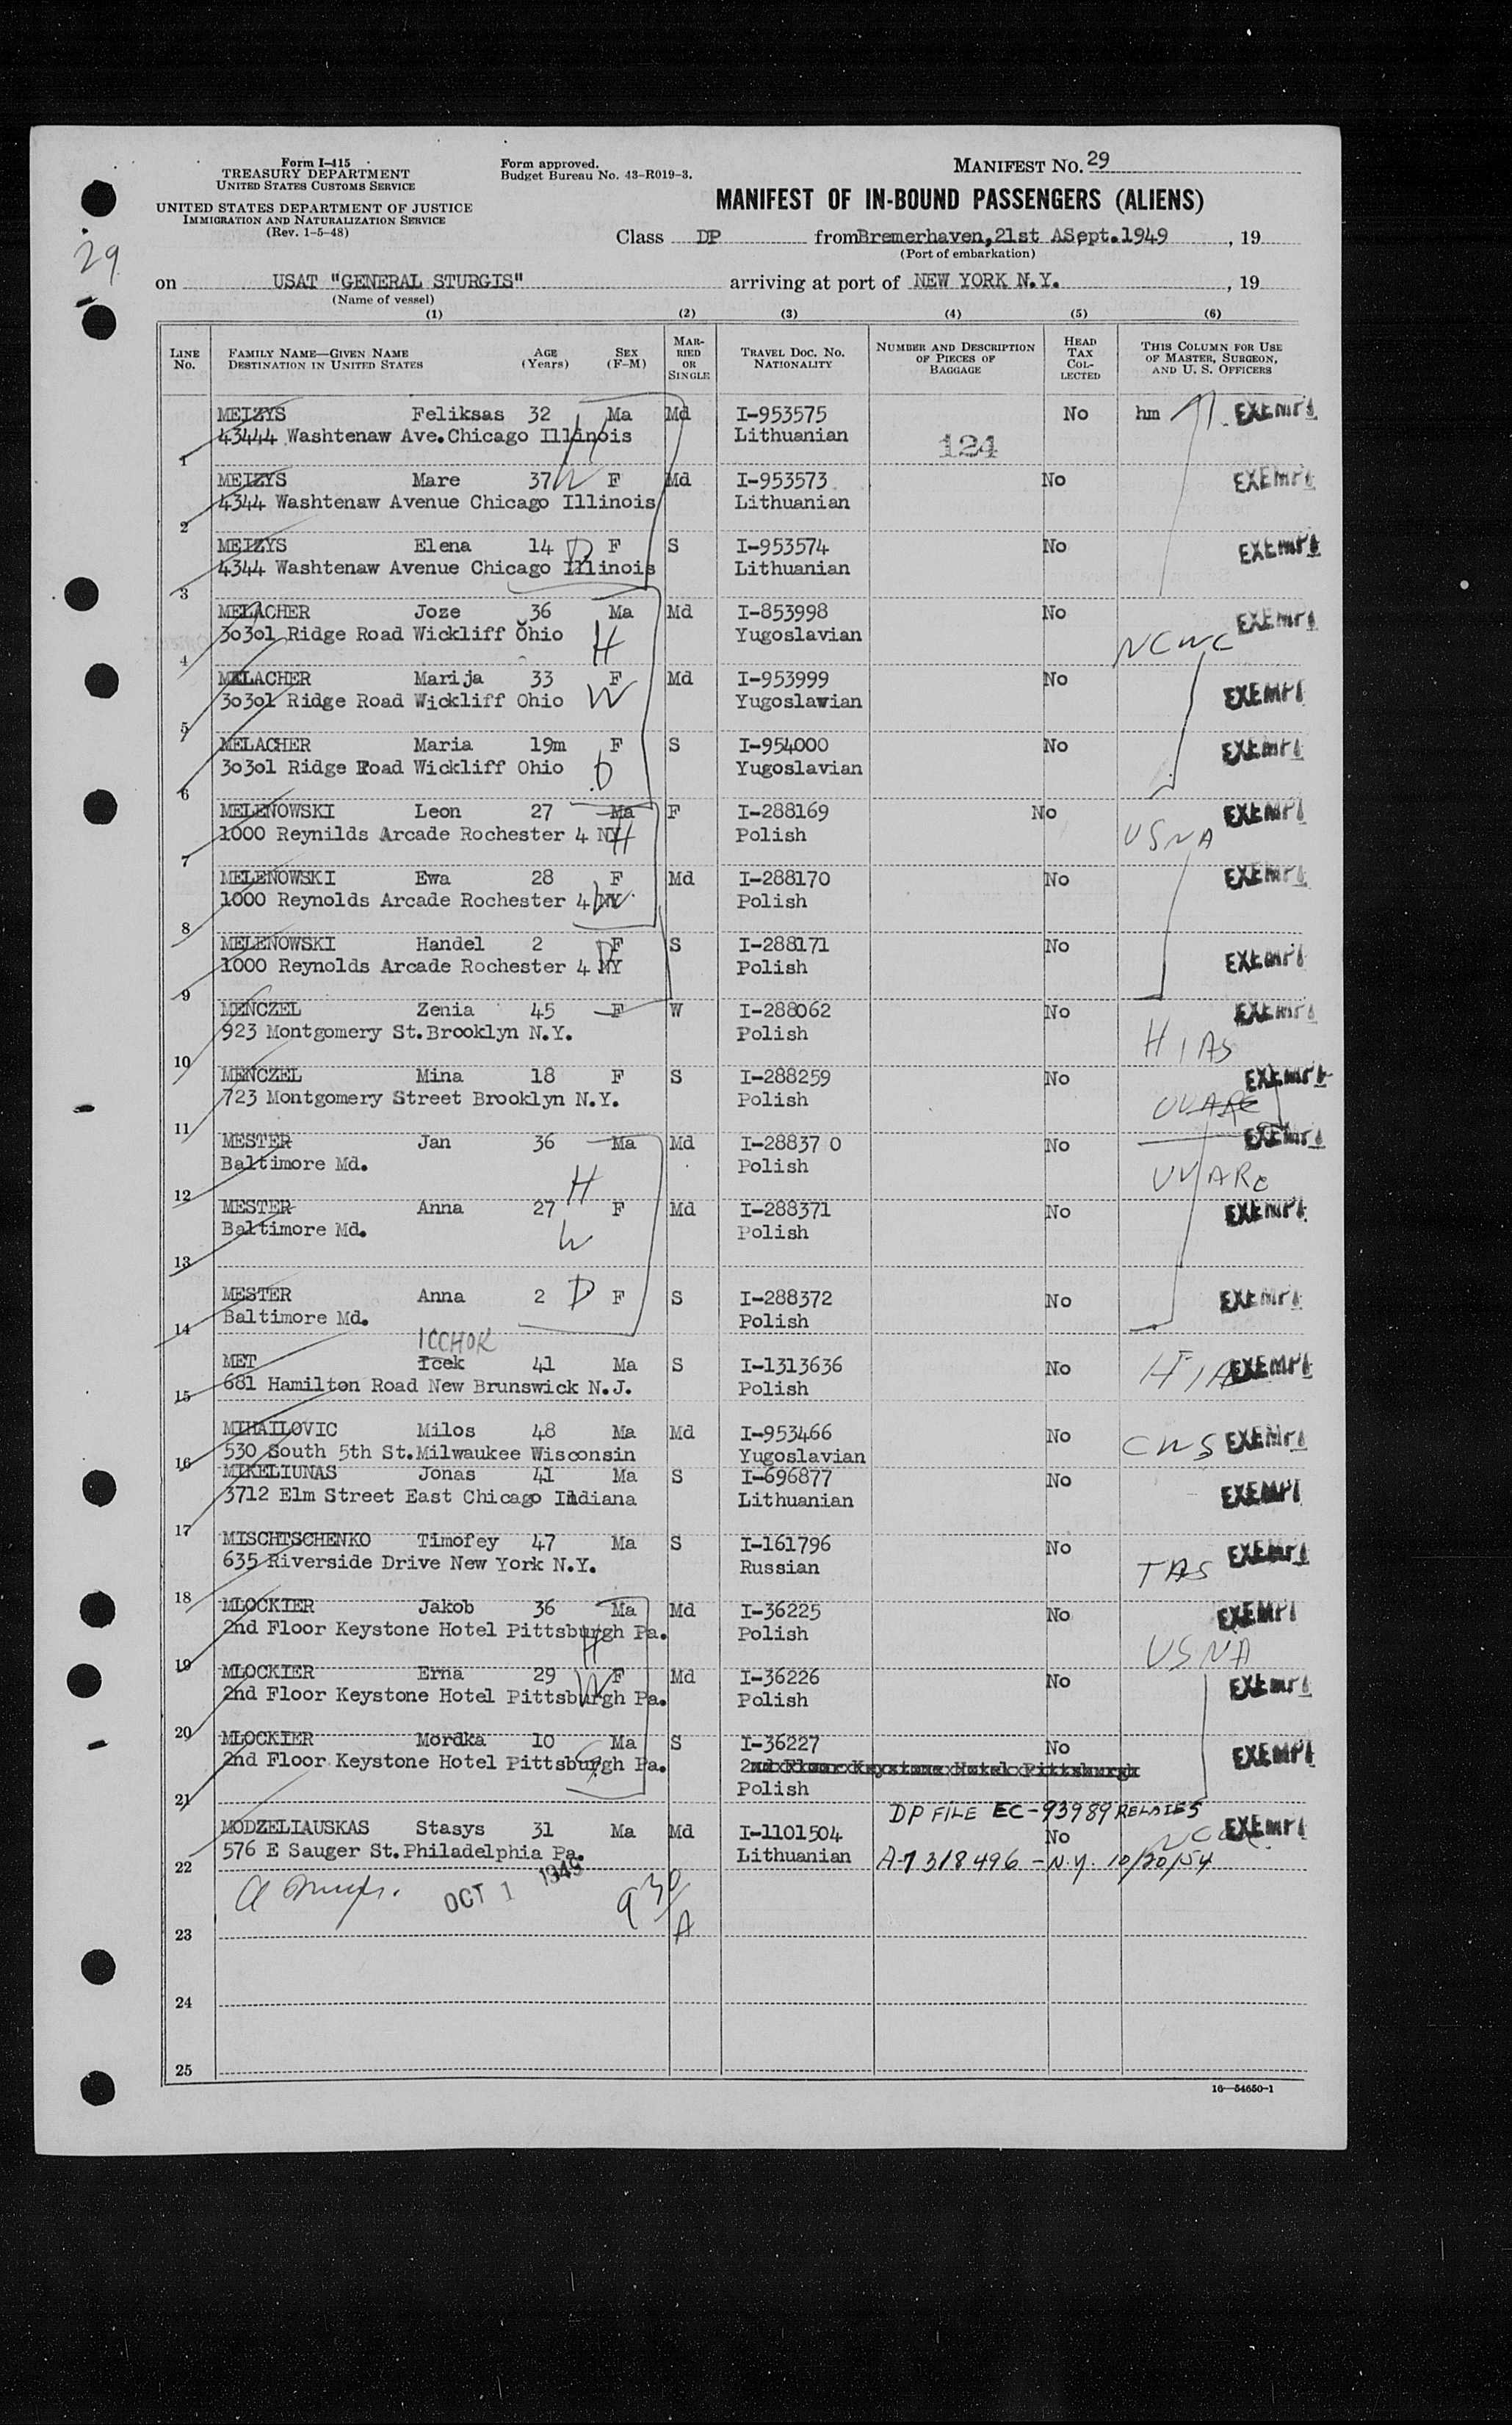 Form I-415
TREASURY DEPARTMENT
UNITED STATES CUSTOMS SERVICE
UNITED STATES DEPARTMENT OF JUSTICE
IMMIGRATION AND NATURALIZATION SERVICE
(Rev. 1-5-48)
Form approved.
Budget Bureau No. 43-R019-3.
MANIFEST NO. 29
MANIFEST OF IN-BOUND PASSENGERS (ALIENS)
Class DP from Bremerhaven, 21st ASept. 1949, 19
(Port of embarkation)
29
on USAT "GENERAL STURGIS" arriving at port of NEW YORK N.Y., 19
(Name of vessel)
(1) (2) (3) (4) (5) (6)
LINE No. FAMILY NAME—GIVEN NAME DESTINATION IN UNITED STATES AGE (Years) SEX (F-M) MARRIED OR SINGLE TRAVEL DOC. NO. NATIONALITY NUMBER AND DESCRIPTION OF PIECES OF BAGGAGE HEAD TAX COLLECTED THIS COLUMN FOR USE OF MASTER, SURGEON, AND U. S. OFFICERS
MEIZYS Feliksas 32 Ma Md I-953575 No hm EXEMPT
43444 Washtenaw Ave. Chicago Illinois H Lithuanian 124
1
MEIZYS Mare 37 W F Md I-953573 No EXEMPT
4344 Washtenaw Avenue Chicago Illinois Lithuanian
2
MEIZYS Elena 14 D F S I-953574 No EXEMPT
4344 Washtenaw Avenue Chicago Illinois Lithuanian
3
MELACHER Joze 36 Ma Md I-853998 No EXEMPT
30301 Ridge Road Wickliff Ohio H Yugoslavian NCWC
4
MELACHER Marija 33 F Md I-953999 No EXEMPT
30301 Ridge Road Wickliff Ohio W Yugoslawian
5
MELACHER Maria 19m F S I-954000 No EXEMPT
30301 Ridge Road Wickliff Ohio D Yugoslavian
6
MELENOWSKI Leon 27 Ma F I-288169 No EXEMPT
1000 Reynilds Arcade Rochester 4 NY H Polish USNA
7
MELENOWSKI Ewa 28 F Md I-288170 No EXEMPT
1000 Reynolds Arcade Rochester 4 NY W Polish
8
MELENOWSKI Handel 2 D F S I-288171 No EXEMPT
1000 Reynolds Arcade Rochester 4 NY Polish
9
MENCZEL Zenia 45 F W I-288062 No EXEMPT
923 Montgomery St. Brooklyn N.Y. Polish HIAS
10
MENCZEL Mina 18 F S I-288259 No EXEMPT
723 Montgomery Street Brooklyn N.Y. Polish UUARC
11
MESTER Jan 36 Ma Md I-28837 0 No EXEMPT
Baltimore Md. H Polish UUARC
12
MESTER Anna 27 F Md I-288371 No EXEMPT
Baltimore Md. W Polish
13
MESTER Anna 2 D F S I-288372 No EXEMPT
Baltimore Md. Polish
14
ICCHOK
MET Icek 41 Ma S I-1313636 No HIA EXEMPT
681 Hamilton Road New Brunswick N.J. Polish
15
MIHAILOVIC Milos 48 Ma Md I-953466 No CWS EXEMPT
530 South 5th St. Milwaukee Wisconsin Yugoslavian
16
MIKELIUNAS Jonas 41 Ma S I-696877 No EXEMPT
3712 Elm Street East Chicago Indiana Lithuanian
17
MISCHTSCHENKO Timofey 47 Ma S I-161796 No EXEMPT
635 Riverside Drive New York N.Y. Russian
18
MLOCKIER Jakob 36 Ma Md I-36225 No EXEMPT
2nd Floor Keystone Hotel Pittsburgh Pa. H Polish USNA
19
MLOCKIER Erna 29 W F Md I-36226 No EXEMPT
2nd Floor Keystone Hotel Pittsburgh Pa. Polish
20
MLOCKIER Mordka 10 Ma S I-36227 No EXEMPT
2nd Floor Keystone Hotel Pittsburgh Pa. 2nd Floor Keystone Hotel Pittsburgh
Polish
21
DP FILE EC-93989 RELATES
MODZELIAUSKAS Stasys 31 Ma Md I-1101504 No EXEMPT
576 E Sauger St. Philadelphia Pa. Lithuanian A-7 318496 - N.Y. 10/20/54
22
OCT 1 1949 9 30/A
23
24
25
16—54650-1